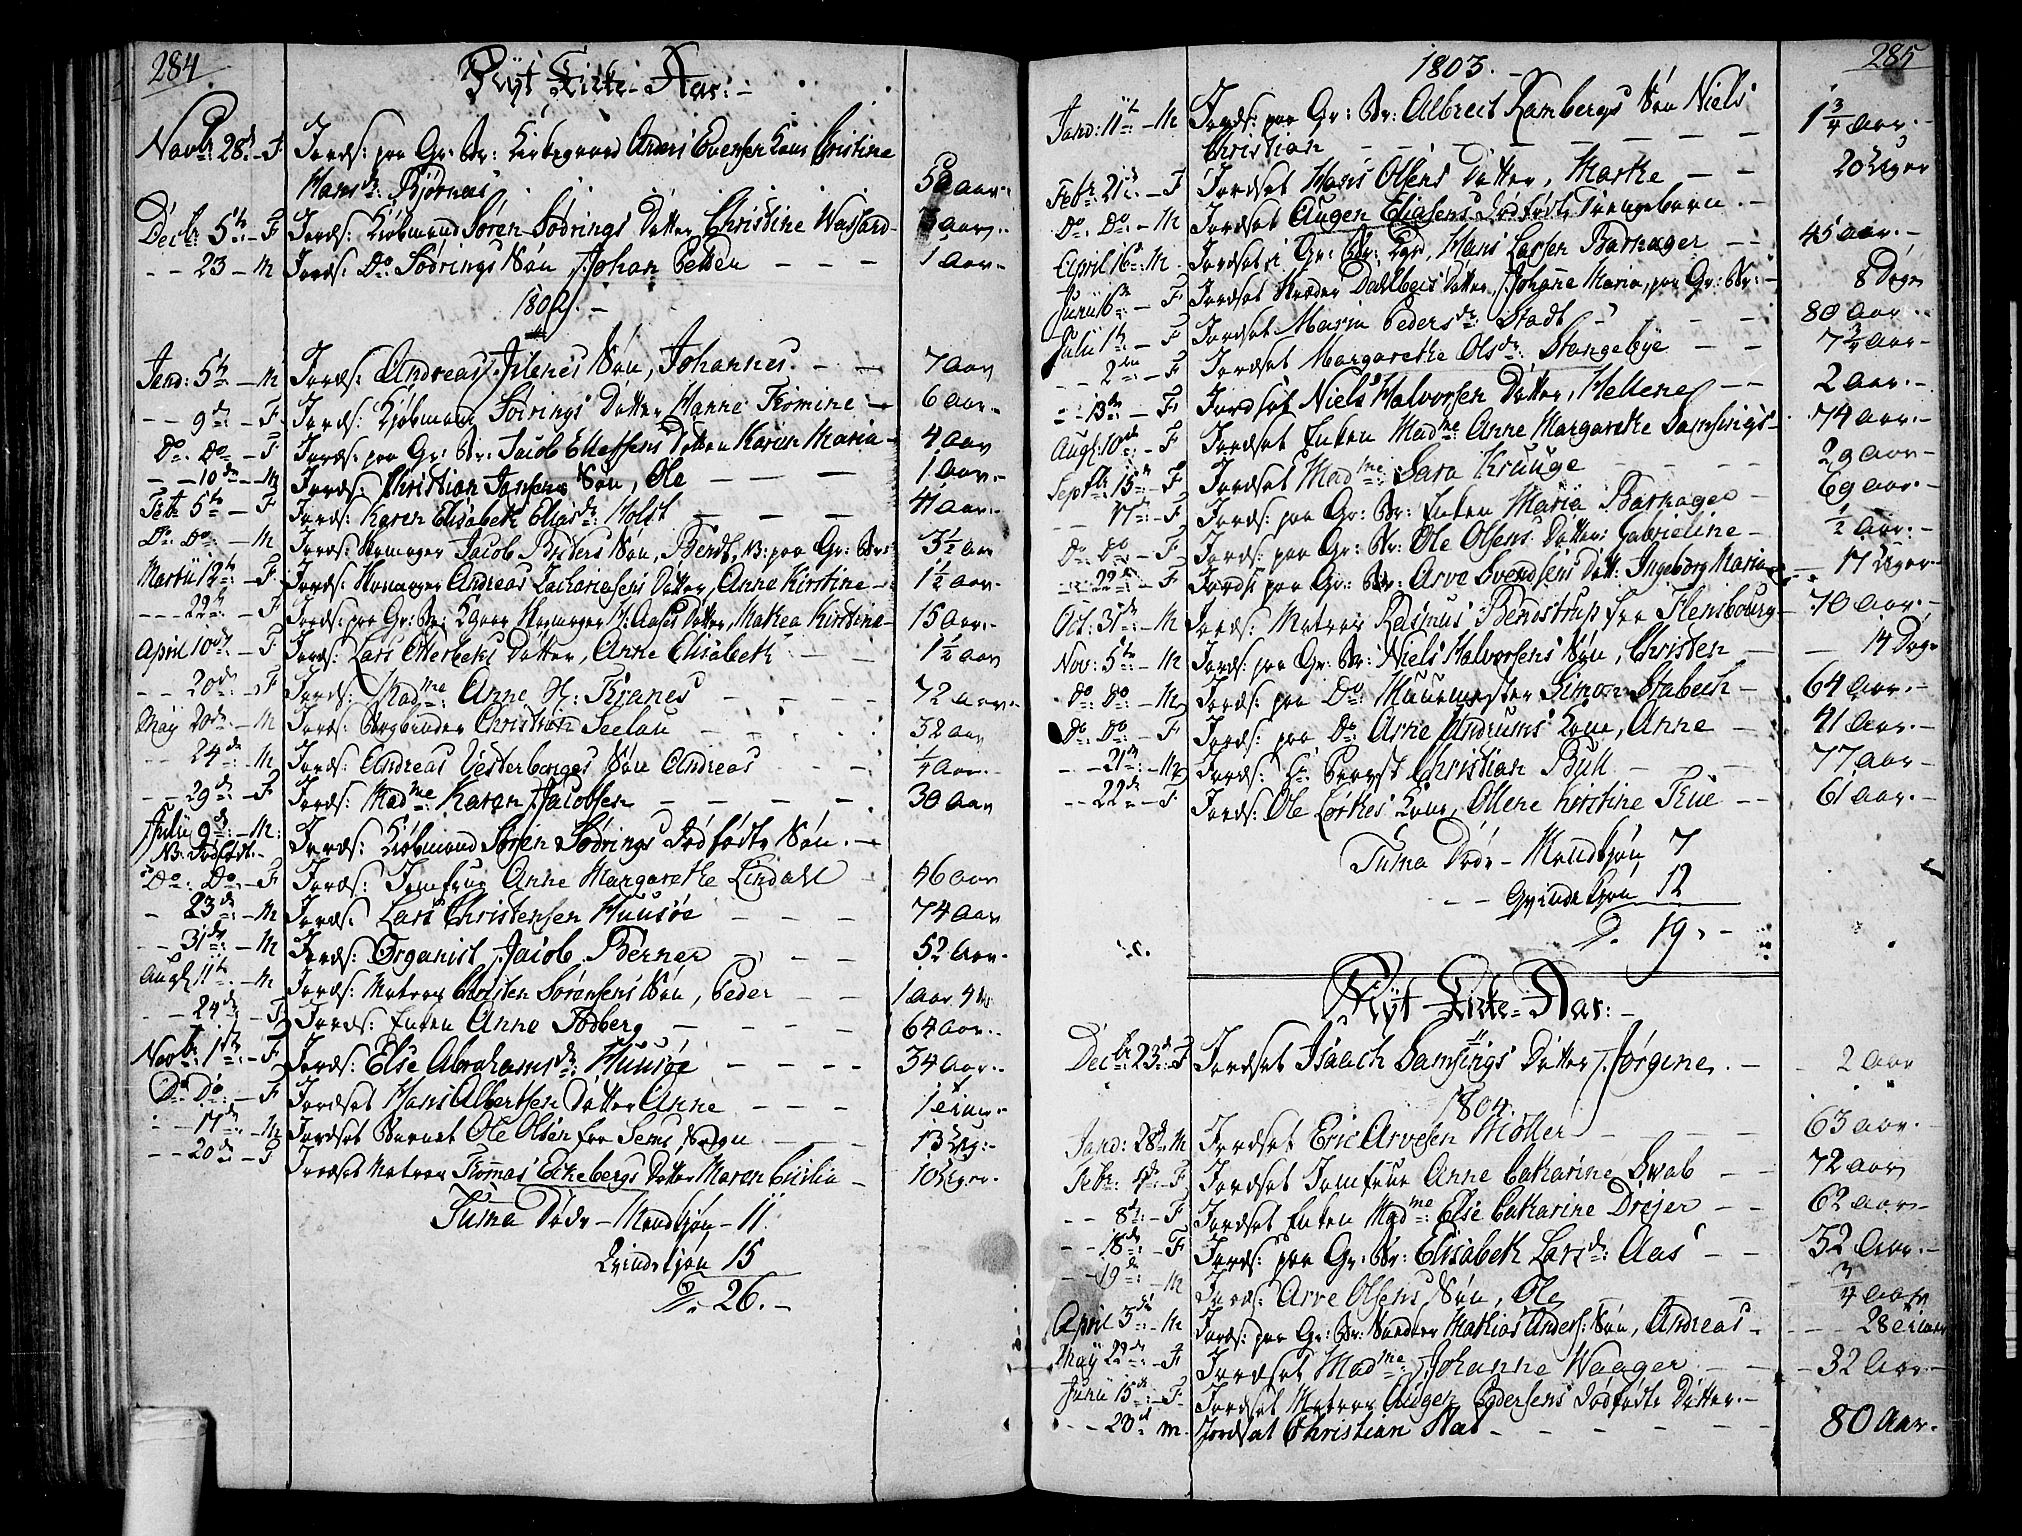 284
Nyt Kirke-Aar:-
Novbr 28de - F Jords: paa Gr: Br: Anders Evensen Kone Christine
Hansdr: Bjørnes 50 Aar.
Decbr 5te - F Jords: Kiøbmand Søren Sødrings Datter Christine 3 Aar.
- - 23 - M Jords: Do Sødrings Søn Johan Peter - - - 1 Aar.
1802. -
Jand: 5te - M Jords: Andreas Søn, Johannes. - - 7 Aar
- - 9de - F Jords: Kiøbmand Sødrings Datter Hanne - 6 Aar.
Do Do - F Jords: paa Gr: Br: Jacob Ellefsens Datter Karen Maria - 4 Aar
- - 10de - M Jords: Christian Jansens Søn, Ole - - - 1 Aar.
Febr 5te - F Jords: Karen Elisabeth Eliasdr: Holst - - - 41 Aar.
Do Do - M Jords: Jacob Søn, Bendt, NB: paa Gr: Br: 3½ Aar
Martii 12te - F Jords: Andreas Zachariasens Datter, Anne Kirstine - 1½ Aar.
- - 22de - F Jords: paa Gr: Br: Datter, Mathea Kirstine - 15 Aar.
April 10de - F Jords: Lars Otterbeks Datter, Anne Elisabeth - 1½ Aar
- - 20de - F Jords: Madme Anne H: - - - 72 Aar.
May 20de - M Jords: Christian Seelau - - - 32 Aar
- - 24de - M Jords: Andreas Vesterberges Søn Andreas - - ¼ Aar.
- - 29de - F Jords: Madme: Karen Jacobsen - - - - 30 Aar
Julii 9de - M: Jords: Kiøbmand Søren Sødrings Dødfødte Søn. -
NB. Dødfødt. -
Do Do - F Jords: Jomfrue Anne Margarethe Lindahl - 46 Aar
- 23de - M Jords: Lars Christensen Huusøe - - - 74 Aar
- - 31de - M Jords: Organist Jacob Berner - - - 52 Aar.
Augt 11te - M Jords: Matros Christen Sørensens Søn, Peder - - 1 Aar
- - 24de - F Jords: Enken Anne Todberg - - - - 64 Aar.
Novbr 1te - F Jords: Else Abrahamsdr: Huusøe - - - 34 Aar.
Do Do - F Jordset Hans Albertsen Datter Anne - - -
- - 17de - M Jordset Barnet Ole Olsen fra Sems Sogn - - 13 Ug:
- - 20de - F Jordset Matros Thomas Eckebergs Datter Maren Cicilia - 10 Uger.
Suma Døde - Mandkjøn - 11.
Qvindekjøn 15
S. 26. -
285
1803. -
Jand: 11te - M Jords: paa Gr: Br: Albrect Rambergs Søn Niels
Christian - - - - - - - 1¾ Aar.
Febr 21de - F Jordset Hans Olsens Datter, Marthe - - 20 Uger
Do Do - M Jordset Augen Eliasens Dødfødte Drengebarn. -
April 16de M. Jordset i Gr: Br: Hans Larsen Barhager - - 45 Aar. -
Junii 6te - F Jordset Datter, Johanne Maria, paa Gr: Br: - 8 Dage
Julii 1te - F Jordset Maria Pedersdr: Stadt - - - 80 Aar
- - 2den - F Jordset Margarethe Olsdr: Slangebye - - - 7¾ Aar -
- - 13de - F Jordset Niels Halvorsen Datter, Hellene - - 2 Aar. -
Augt 10de - F Jordset Enken Madme: Anne Margarethe Samsings - 74 Aar. -
Septbr 15de - F Jordset Madme: Sara Kruuge - - - - 29 Aar -
- - 17de - F Jords: paa Gr: Br: Enken Maria Barhager - 69 Aar. -
Do Do - F Jords: paa Gr: Br: Ole Olsens Datter: Gabrieline - ½ Aar. -
- - 22de - F Jords: paa Gr: Br: Arve Svendsens Datt: Ingeborg Maria - 17 Uger -
Oct: 31de - M Jords: Matros Rasmus Bendstrup fra Flensbourg - 70 Aar. -
Nov: 5te - M Jords: paa Gr: Br: Niels Halvorsens Søn, Christen - 14 Dage
Do Do - M Jords: paa Do Muurmester Simon Stabech - 64 Aar. -
Do Do - F Jords: paa Do Arne Andrums Kone, Anne - 41 Aar. -
- - 21de - M Jords: Hr Provst Christian Bull - - - 77 Aar -
- - 22de - F Jords: Ole Lørkes Kone, Ollene Kirstine True - - 61 Aar. -
Suma Døde - Mandkjøn 7
- - Qvindekjøn 12
S. 19. -
Nyt Kirke-Aar: -
Decbr 23de F Jordset Isaach Samsings Datter Jørgine. - - 2 Aar
1804.
Jand: 28de M Jordset Eric Arvesen Møller - - - - 63 Aar. -
Febr: 4de - F Jordset Jomfrue Anne Catharine Svab - - 72 Aar
- - 8de - F Jordset Enken Madme: Else Catharine Dreyer - - 62 Aar -
- - 18de - F Jords: paa Gr: Br: Elisabeth Larsdr: Aas - - 52 Aar. -
- - 19de - M Jords: Arve Olsens Søn, Ole - - - ¾ Aar
April 3de - M Jords: paa Gr: Br: Mathias Anders: Søn, Andreas - - - - 28
May 29de - F Jordset Madme Johanne Waager - - 32 Aar -
Junii 15de - F Jordset Matros Augen Pedersens Dødfødte Datter. -
- - 23de m. Jordsat Christian Stat - - - - - 80 Aar. -